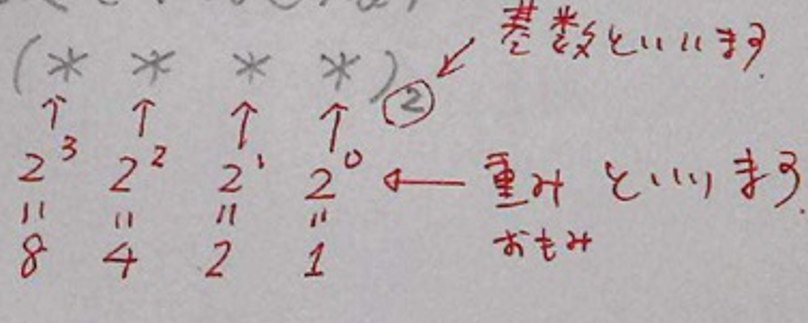 基数といいます
(* * * *)②
↑ ↑ ↑ ↑
2³ 2² 2¹ 2⁰ ← 重みといいます
〃 〃 〃 〃 おもみ
8 4 2 1